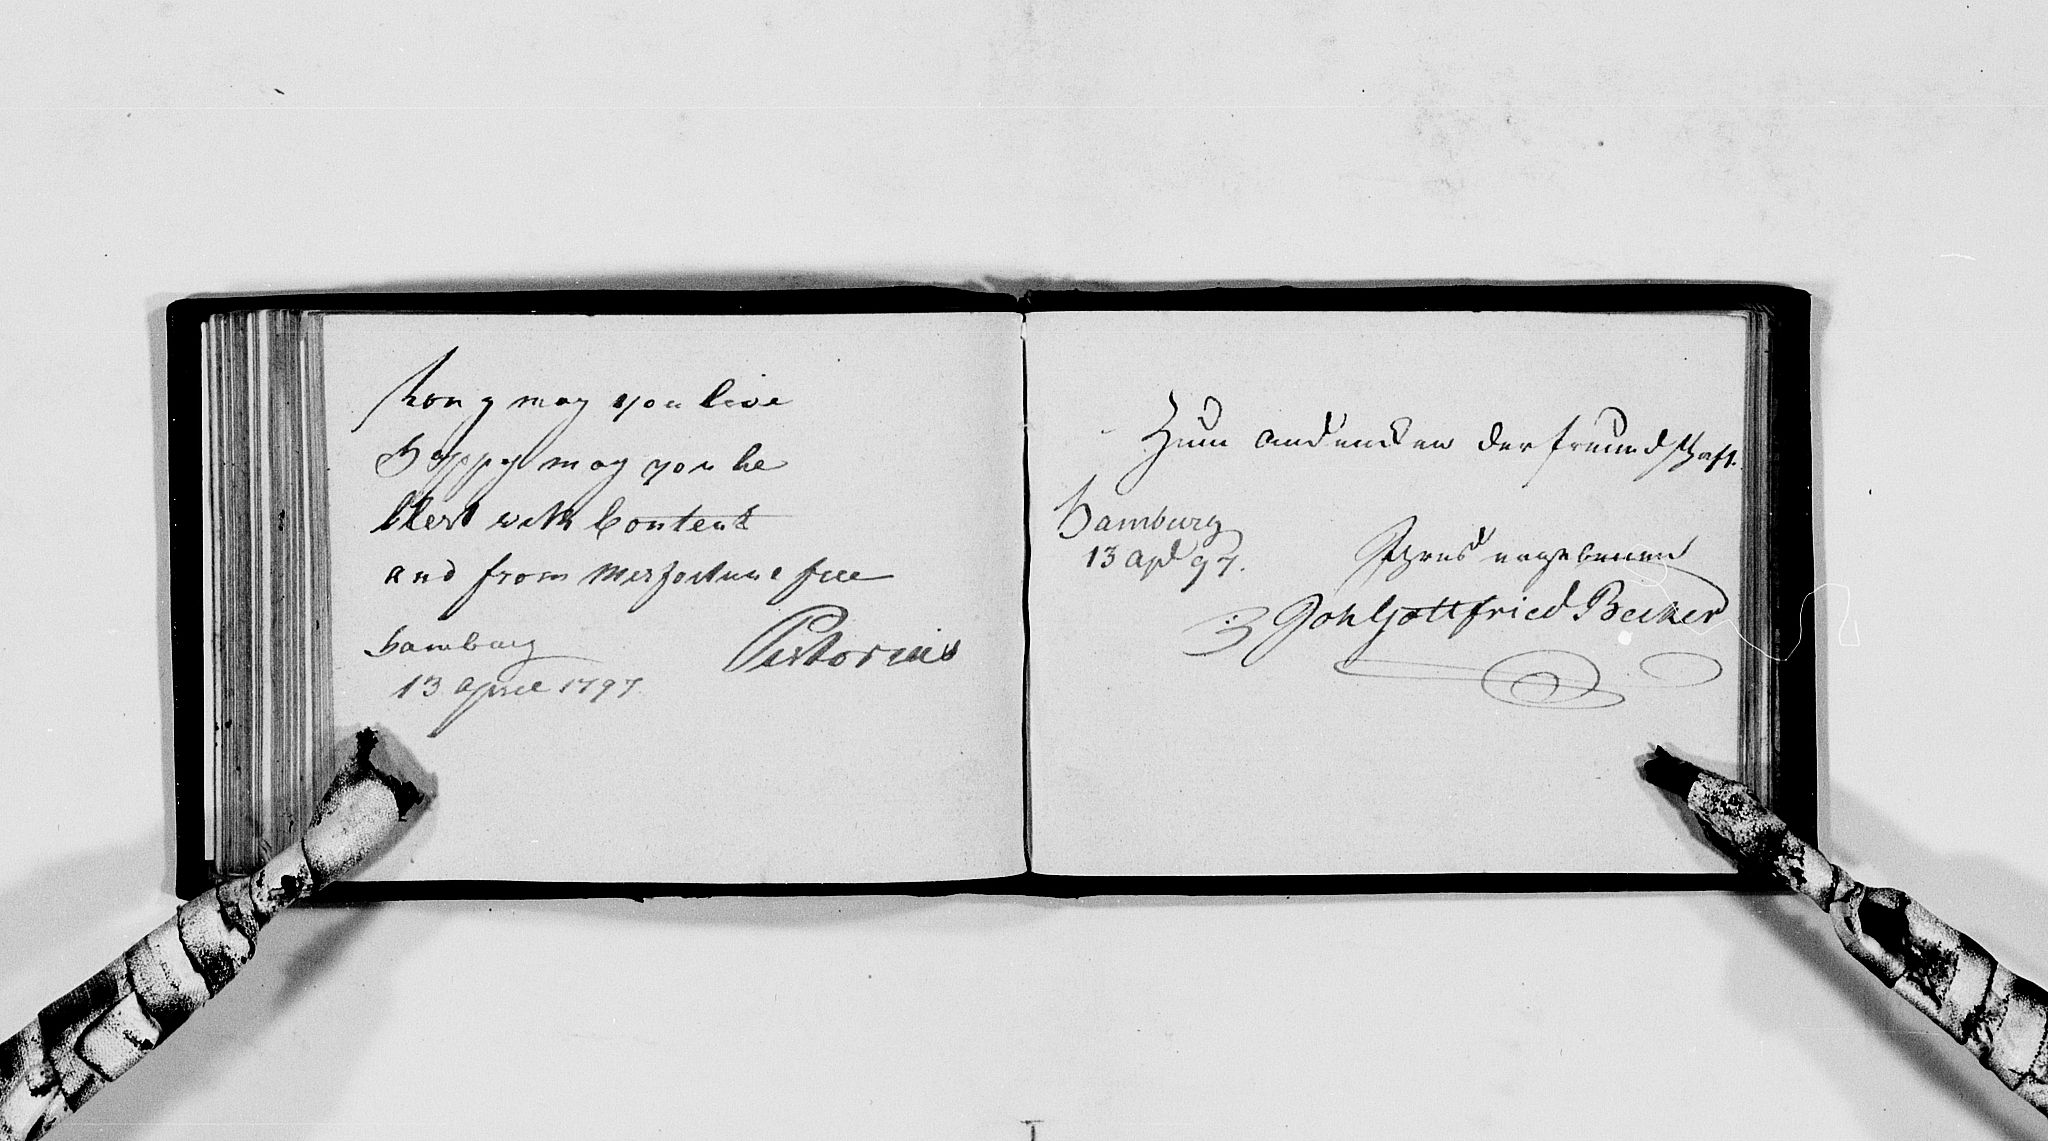 Long may you live
Happy may you be
blest with Content
and from Misfortune free
Hamburg
13 April 1797
Pistorius
Zum andencken der freundschafft.
Hamburg
13 Apl 97.
Ihres ergebenen
Joh Gottfried Becker